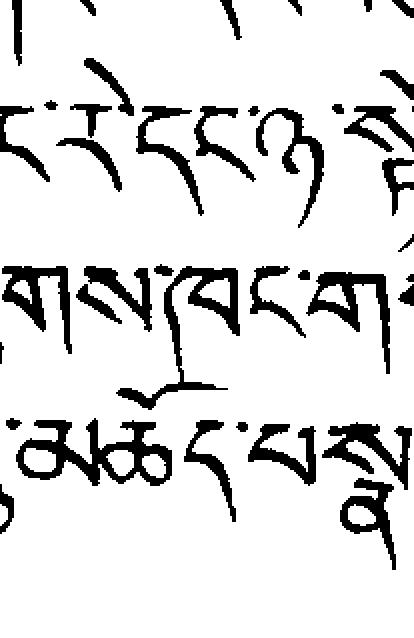 ང་རེ་དང་ཉ་
གས་ཁང་ག
་མཆོད་པ་སྣ